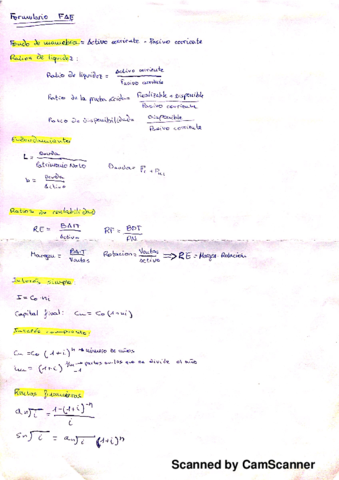 Formulario FAE
Fondo de maniobra = Activo corriente - Pasivo corriente
Ratios de liquidez:
Ratio de liquidez = Activo corriente / Pasivo corriente
Ratio de la prueba ácida = Realizable + Disponible / Pasivo corriente
Ratio de disponibilidad = Disponible / Pasivo corriente
Endeudamiento
L = Deuda / Patrimonio Neto
b = Deuda / Activo
Ratios de rentabilidad
RE = BAIT / Activo RF = BDT / PN
Margen = BAIT / Ventas Rotacion = Ventas / Activo ⇒ RE = Margen · Rotacion
Interés simple
I = Co · n · i
Capital final: Cn = Co (1+ni)
Interés compuesto:
Cn = Co (1+i)^n → número de años
im = (1+i)^1/m - 1 → partes en las que se divide el año
Rentas financieras
an¬i = 1-(1+i)^-n / i
Sn¬i = an¬i (1+i)^n
Scanned by CamScanner